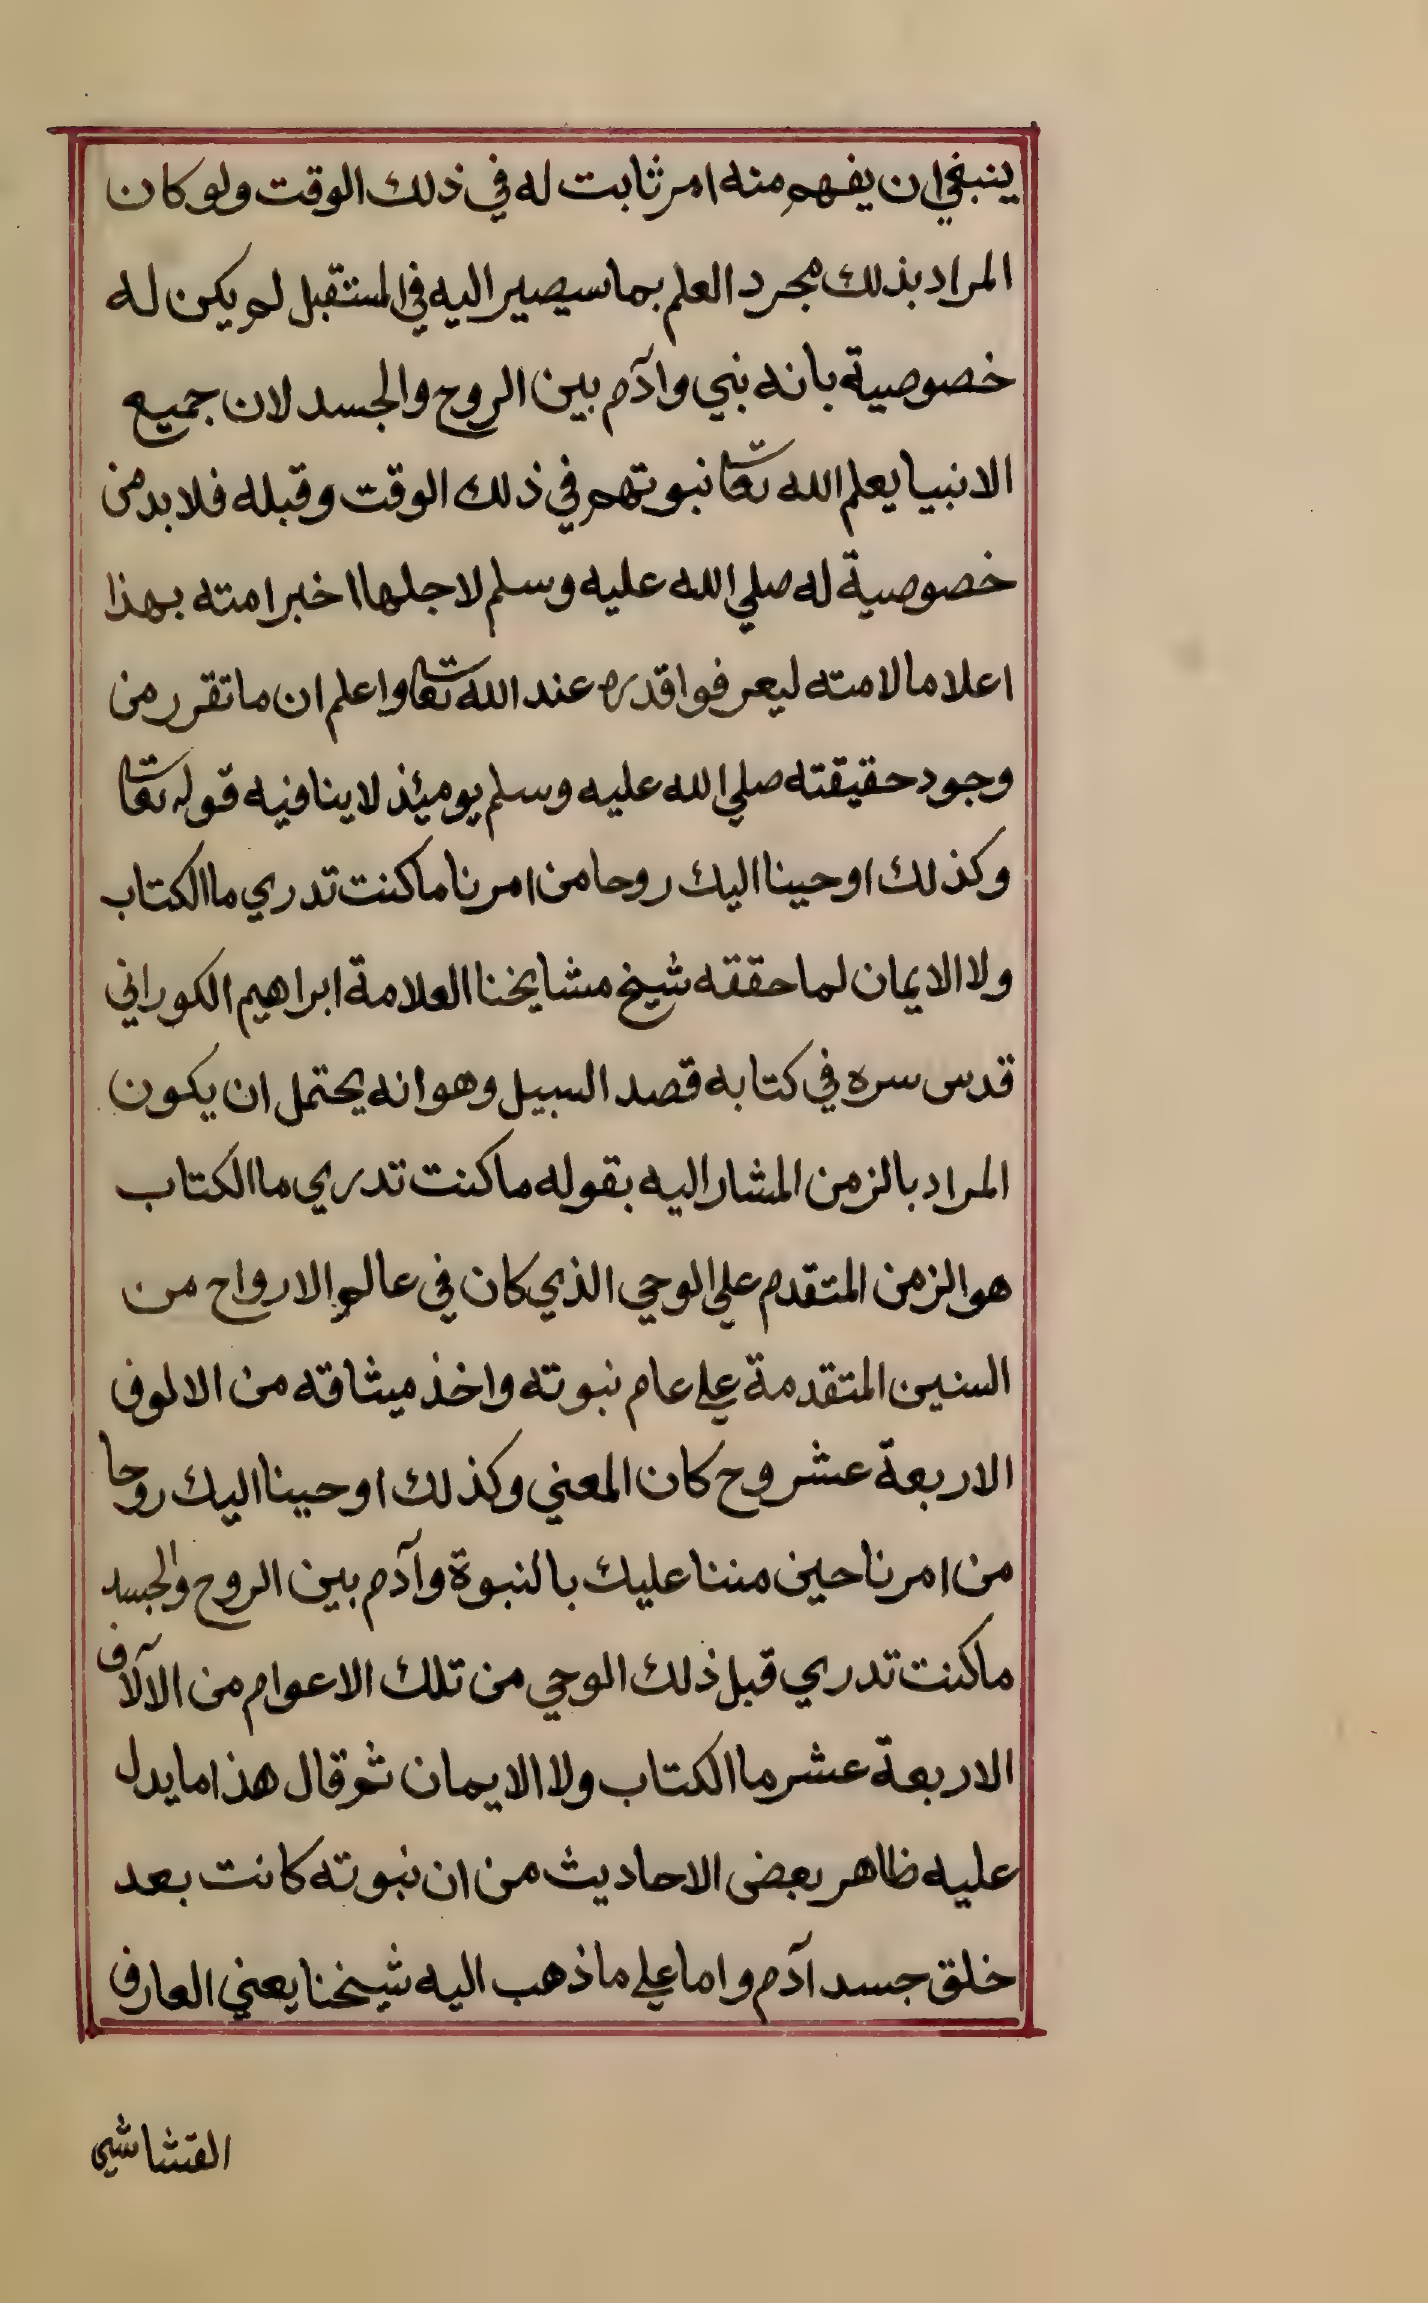 ينبغي ان يفهم منه امر ثابت له في ذلك الوقت ولو كان
المراد بذلك مجرد العلم بما سيصير اليه في المستقبل لم يكن له
خصوصية بانه نبي وآدم بين الروح والجسد لان جميع
الانبيا يعلم الله تعا نبوتهم في ذلك الوقت وقبله فلا بد من
خصوصية له صلي الله عليه وسلم لاجلها اخبر امته بهذا
اعلاما لامته ليعرفوا قدره عند الله تعا واعلم ان ما تقرر من
وجود حقيقته صلي الله عليه وسلم يومئذ لا ينافيه قوله تعا
وكذلك اوحينا اليك روحا من امرنا ما كنت تدري ما الكتاب
ولا الايمان لما حققه شيخ مشايخنا العلامة ابراهيم الكوراني
قدس سره في كتابه قصد السبيل وهو انه يحتمل ان يكون
المراد بالزمن المشار اليه بقوله ما كنت تدري ما الكتاب
هو الزمن المتقدم علي الوحي الذي كان في عالم الارواح من
السنين المتقدمة علي عام نبوته واخذ ميثاقه من الالوف
الاربعة عشر وح كان المعني وكذلك اوحينا اليك روحا
من امرنا حين مننا عليك بالنبوة وآدم بين الروح والجسد
ما كنت تدري قبل ذلك الوحي من تلك الاعوام من الآلاف
الاربعة عشر ما الكتاب ولا الايمان ثم قال هذا ما يدل
عليه ظاهر بعض الاحاديث من ان نبوته كانت بعد
خلق جسد آدم واما علي ما ذهب اليه شيخنا يعني العارف
القشاشي